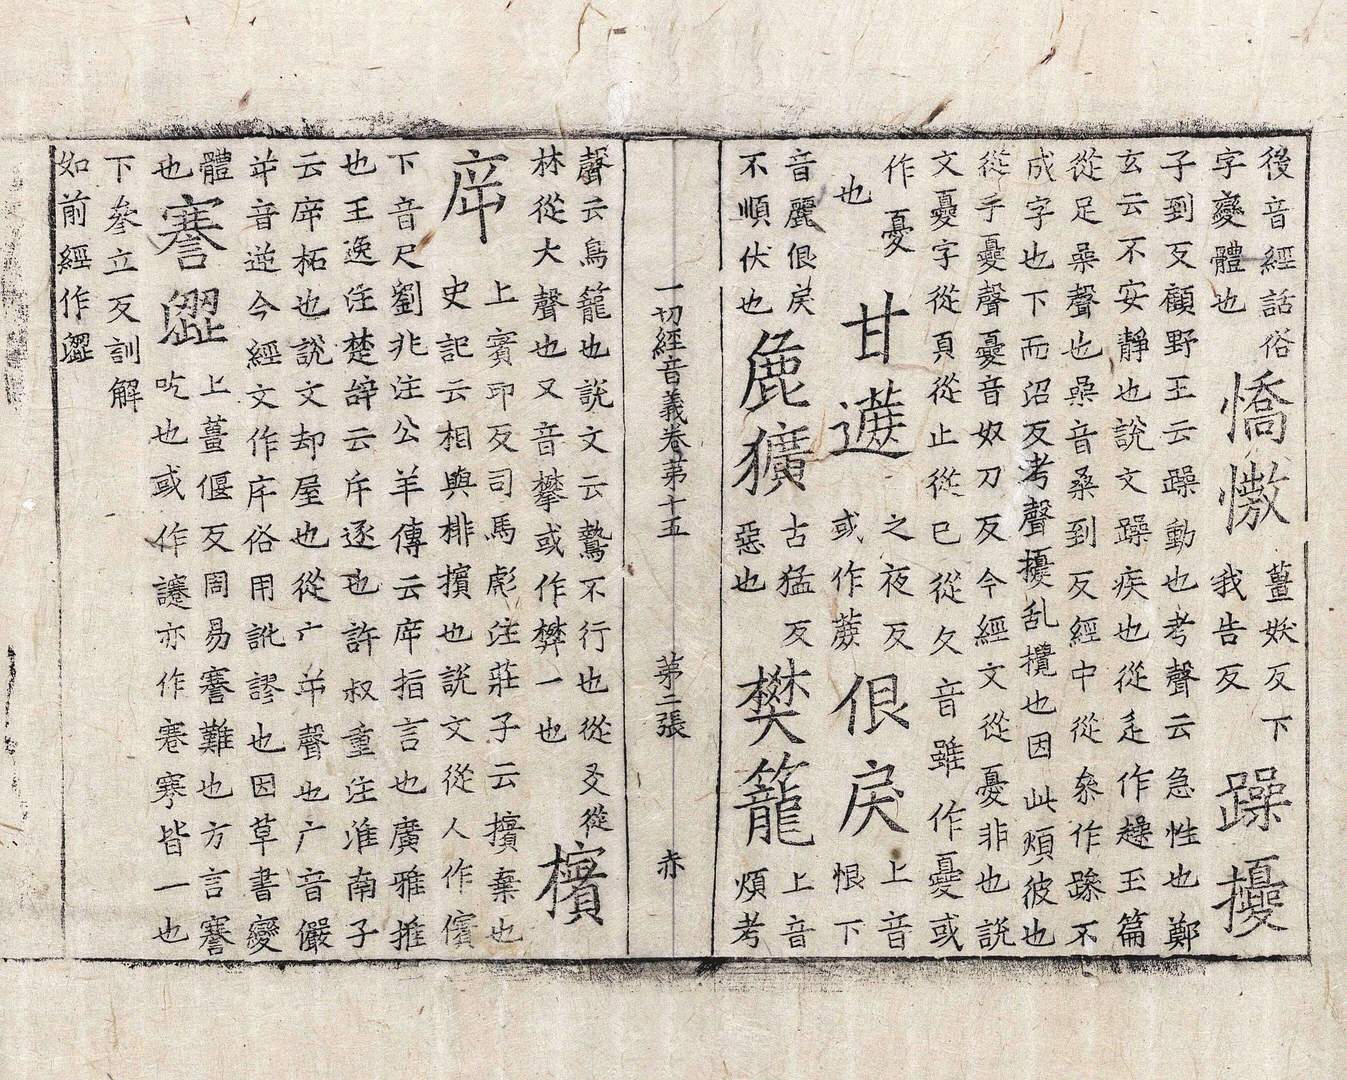 後音經話俗
字變體也
憍慠
薑妖反下
我告反
躁擾
子到反顧野王云躁動也考聲云急性也鄭
玄云不安靜也說文躁疾也從辵作趮玉篇
從足喿聲也喿音桑到反經中從叅作躁不
成字也下而沼反考聲擾乱攪也因此煩彼也
從手憂聲憂音奴刀反今經文從憂非也說
文憂字從頁從止從巳從夊音雖作憂或
作憂
也
甘蔗
之夜反
或作蔗
佷戾
上音
恨下
音麗佷戾
不順伏也
麁獷
古猛反
惡也
樊籠
上音
煩考
一切經音義卷第十五 第二張 赤
聲云鳥籠也說文云鷙不行也從爻從
林從大聲也又音攀或作樊一也
擯
㡿
上賓印反司馬彪注莊子云擯棄也
史記云相與排擯也說文從人作儐
下音尺劉兆注公羊傳云㡿指言也廣雅推
也王逸注楚辭云斥逐也許叔重注淮南子
云㡿柘也說文却屋也從广屰聲也广音儼
屰音逆今經文作斥俗用訛謬也因草書變
體
也
謇澀
上薑偃反周易謇難也方言謇
吃也或作讓亦作蹇皆一也
下參立反訓解
如前經作澁